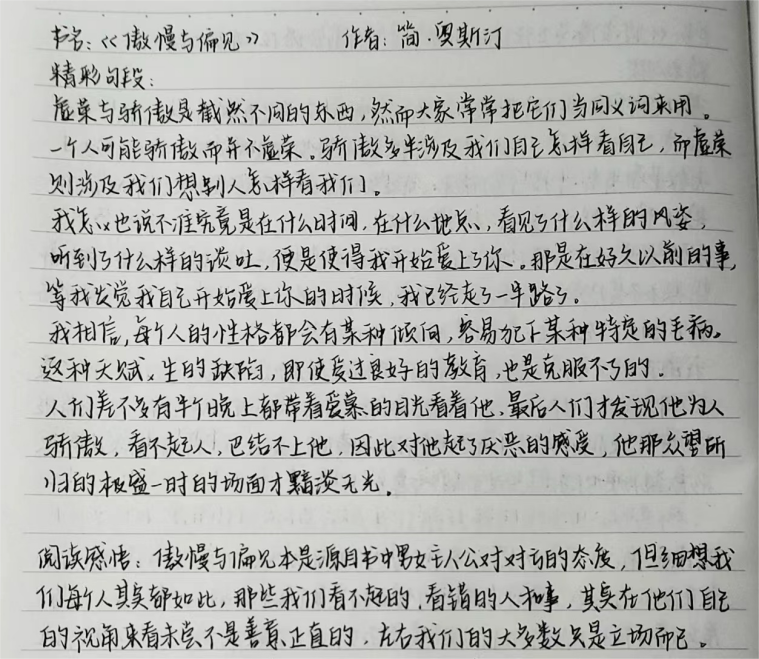 书名:《傲慢与偏见》 作者:简·奥斯汀
精彩句段:
虚荣与骄傲是截然不同的东西,然而大家常常把它们当同义词来用。
一个人可能骄傲而并不虚荣。骄傲多半涉及我们自己怎样看自己,而虚荣
则涉及我们想别人怎样看我们。
我怎么也说不准究竟是在什么时间,在什么地点,看见了什么样的风姿,
听到了什么样的谈吐,便是使得我开始爱上了你。那是在好久以前的事,
等我发觉我自己开始爱上你的时候,我已经走了一半路了。
我相信,每个人的性格都会有某种倾向,容易犯下某种特定的毛病。
这种天赋、生的缺陷,即使受过良好的教育,也是克服不了的。
人们差不多有半个晚上都带着爱慕的目光看着他,最后人们才发现他为人
骄傲,看不起人,巴结不上他,因此对他起了厌恶的感受,他那众望所
归的极盛一时的场面才黯淡无光。
阅读感悟:傲慢与偏见本是源自书中男女主人公对对方的态度,但细想我
们每个人其实都如此,那些我们看不起的,看错的人和事,其实在他们自己
的视角来看未尝不是善意、正直的,左右我们的大多数只是立场而已。